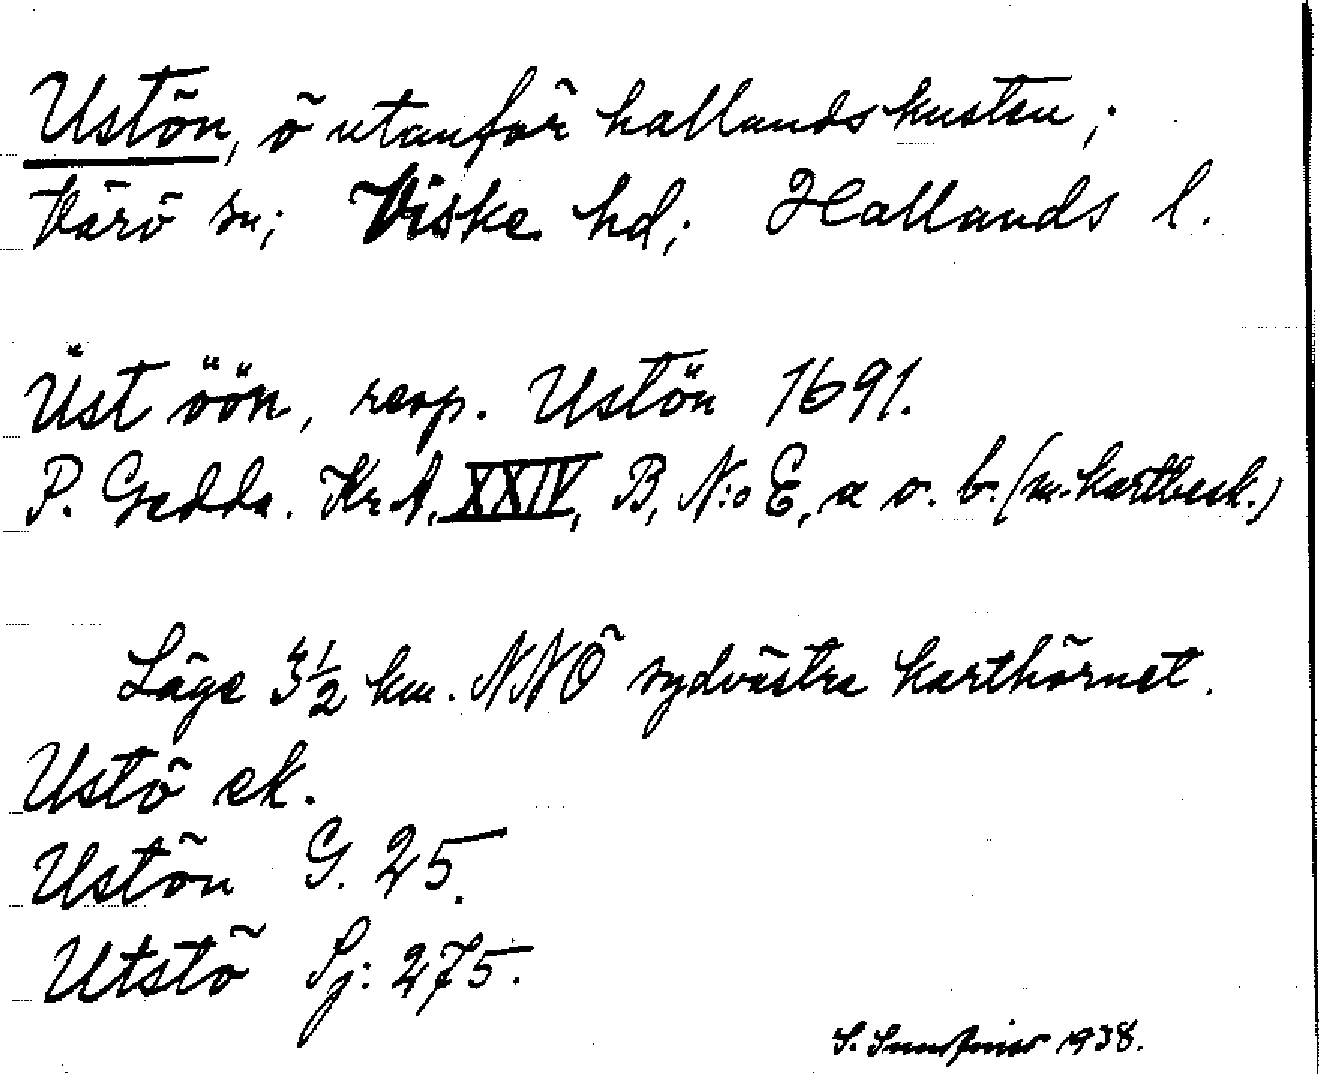 Ustön, ö utanför hallandskusten;
Värö sn; Viske hd; Hallands l.
Üst öön, resp. Ustön 1691.
P. Gedda. Kr. A, XXIV, B, N:o E, a o. b. (m. kartbesk.)
Läge 3½ km. NNÖ sydvästra karthörnet.
Ustö ek.
Ustön G. 25.
Utstö Sj: 275.
S. 1938.